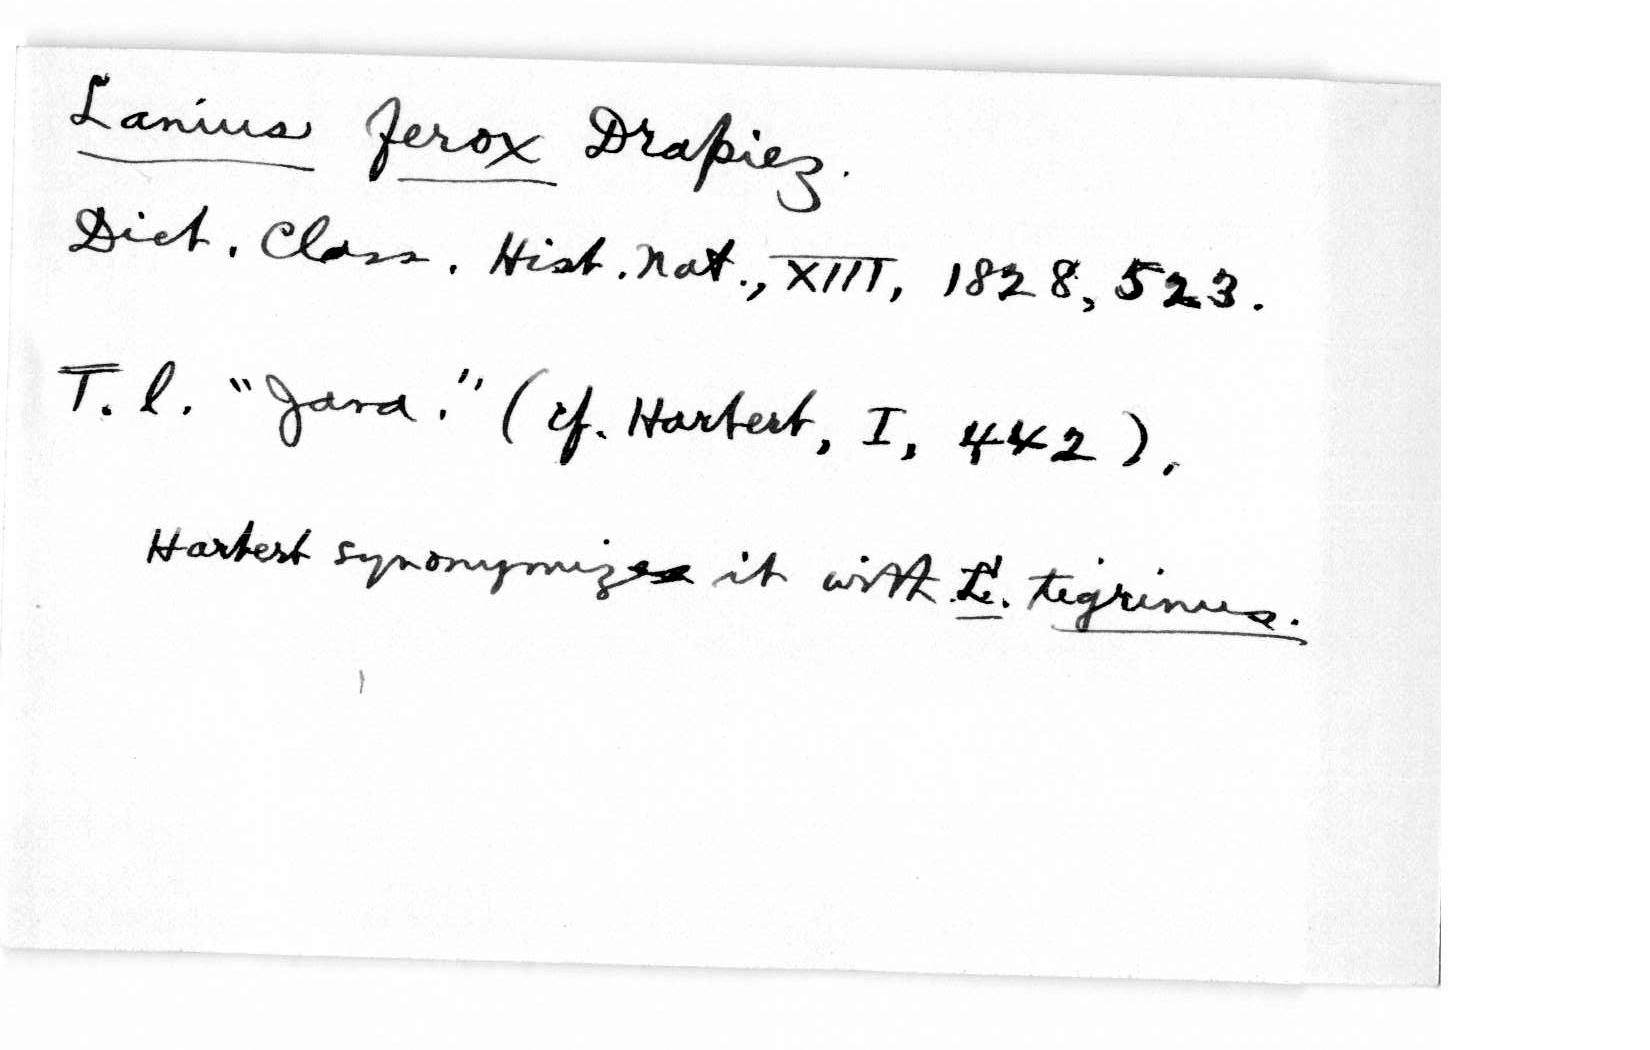 Lanius ferox Drapiez.
Dict. Class. Hist. Nat., XIII, 1828, 523.
T. l. "Java." (cf. Hartert, I, 442).
Hartert synonymizes it with L. tigrinus.